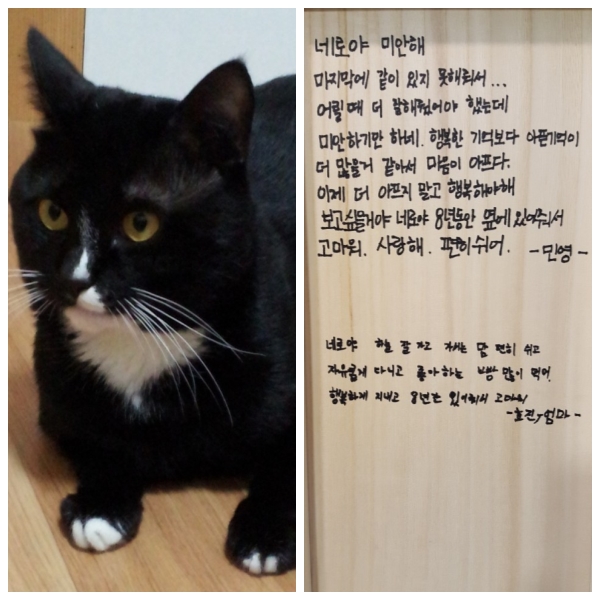 네로야 미안해
마지막에 같이 있지 못해줘서...
어릴때 더 잘해줬어야 했는데
미안하기만 하네. 행복한 기억보다 아픈기억이
더 많을거 같아서 마음이 아프다.
이제 더 아프지 말고 행복해야해
보고싶을거야 네로야 8년동안 옆에있어줘서
고마워. 사랑해. 편히쉬어. -민영-
네로야 하늘 잘 가고 가서는 맘 편히 쉬고
자유롭게 다니고 좋아하는 빵 많이 먹어.
행복하게 지내고 8년간 있어줘서 고마워
-호진,엄마-